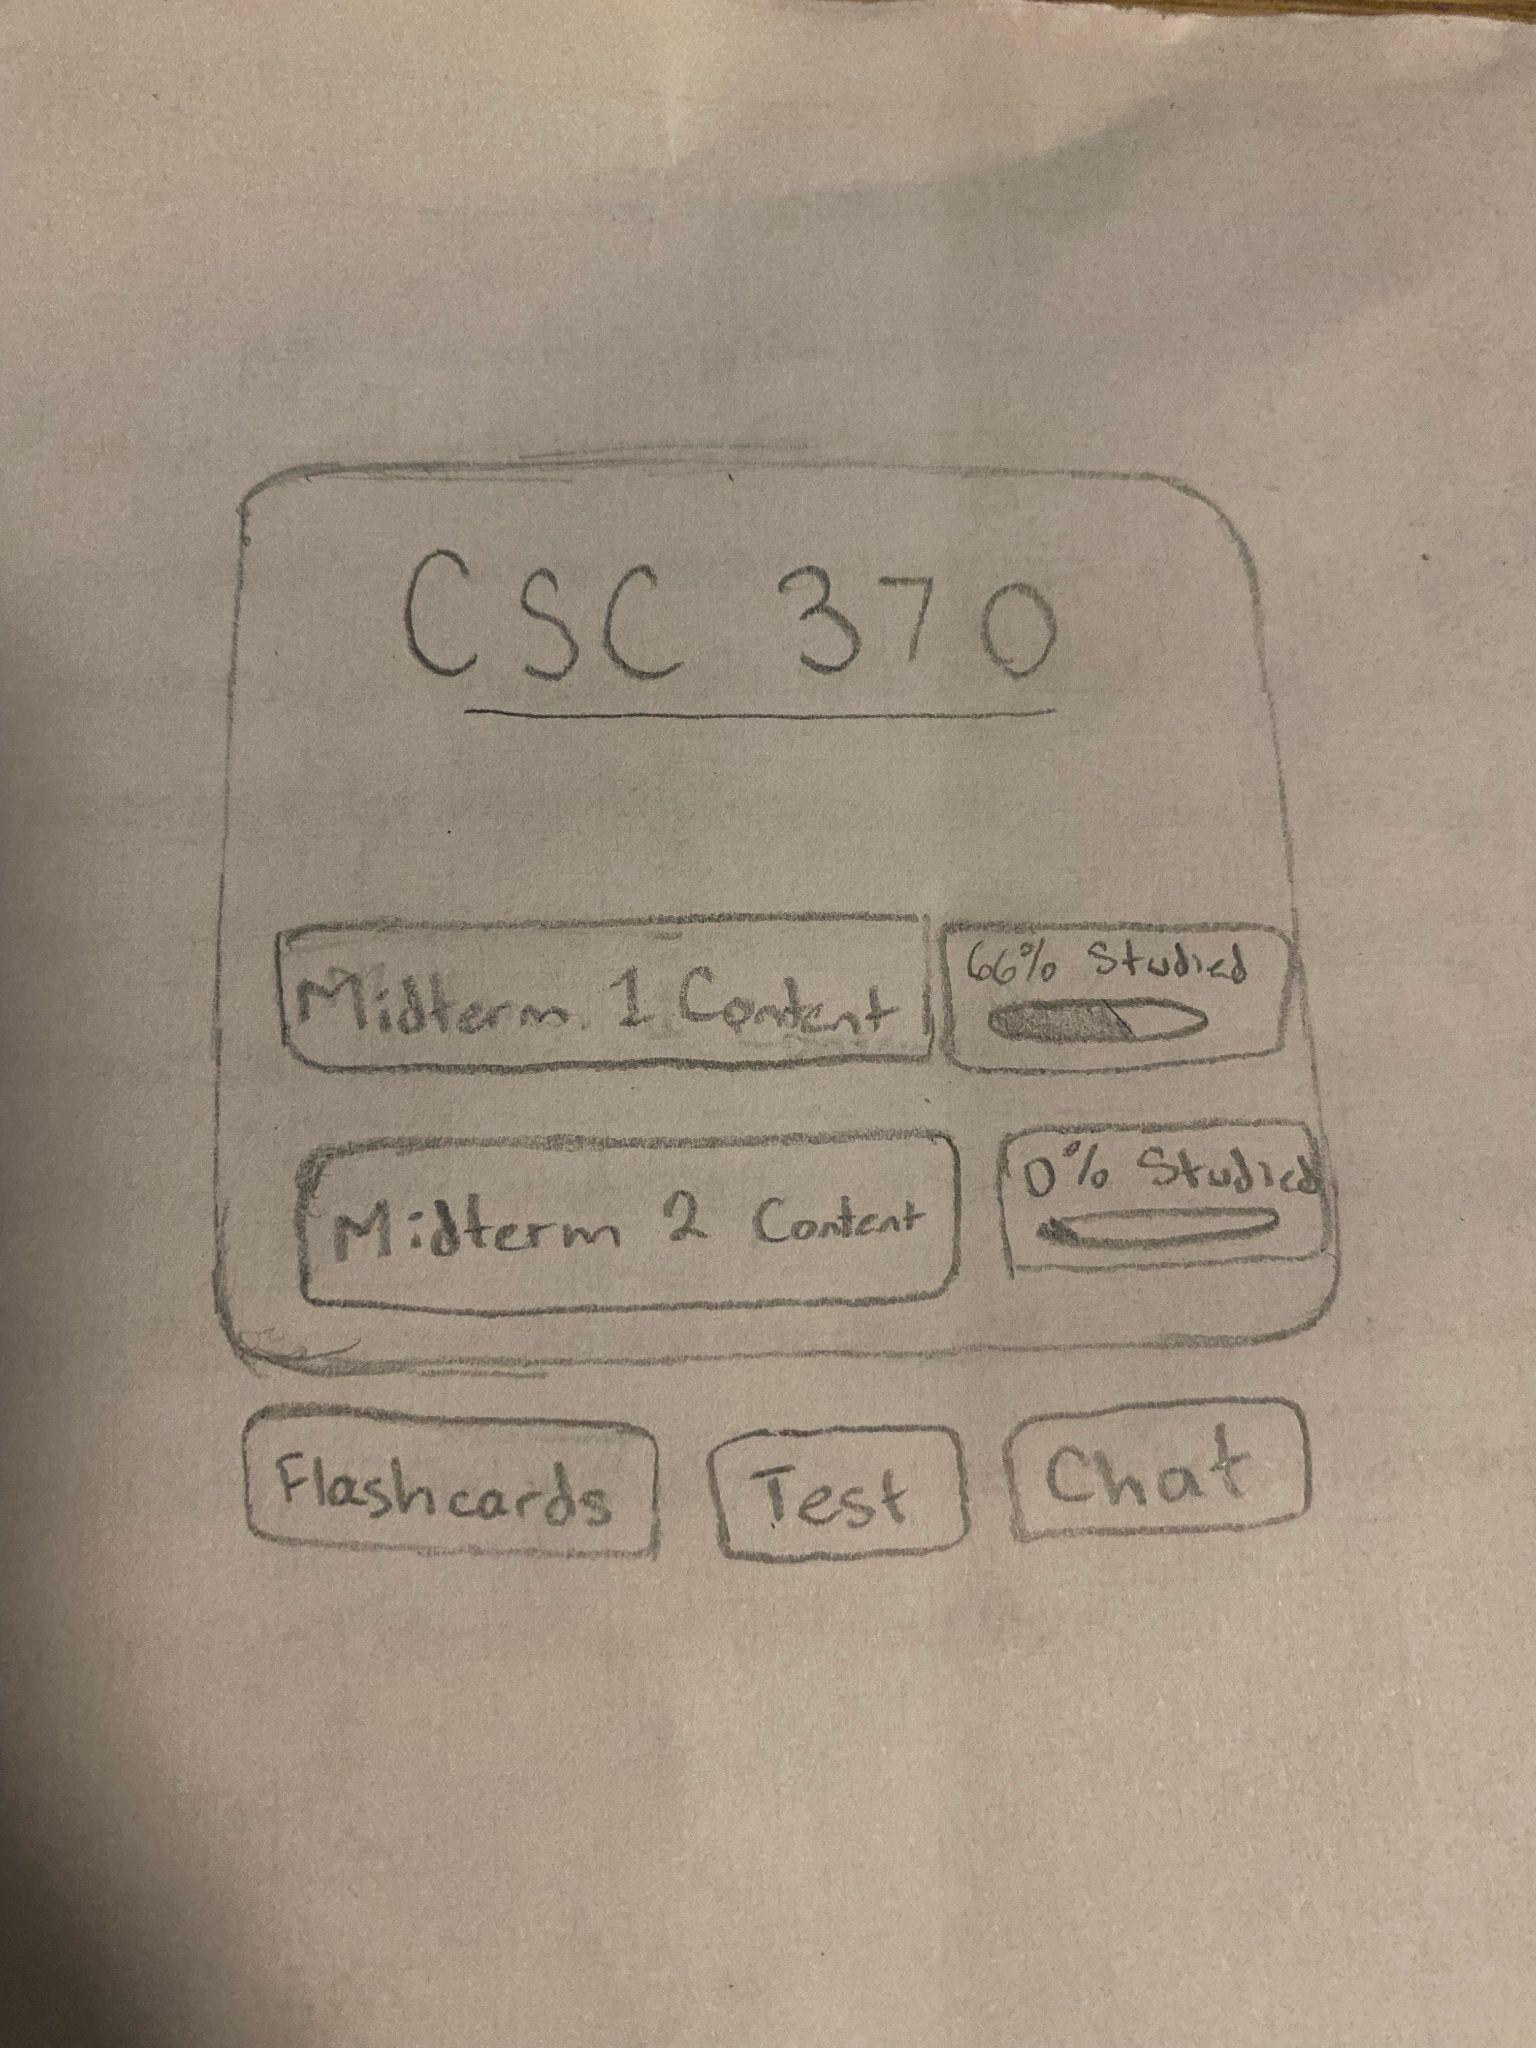 CSC 370
Midterm 1 Content
66% Studied
Midterm 2 Content
0% Studied
Flashcards
Test
Chat